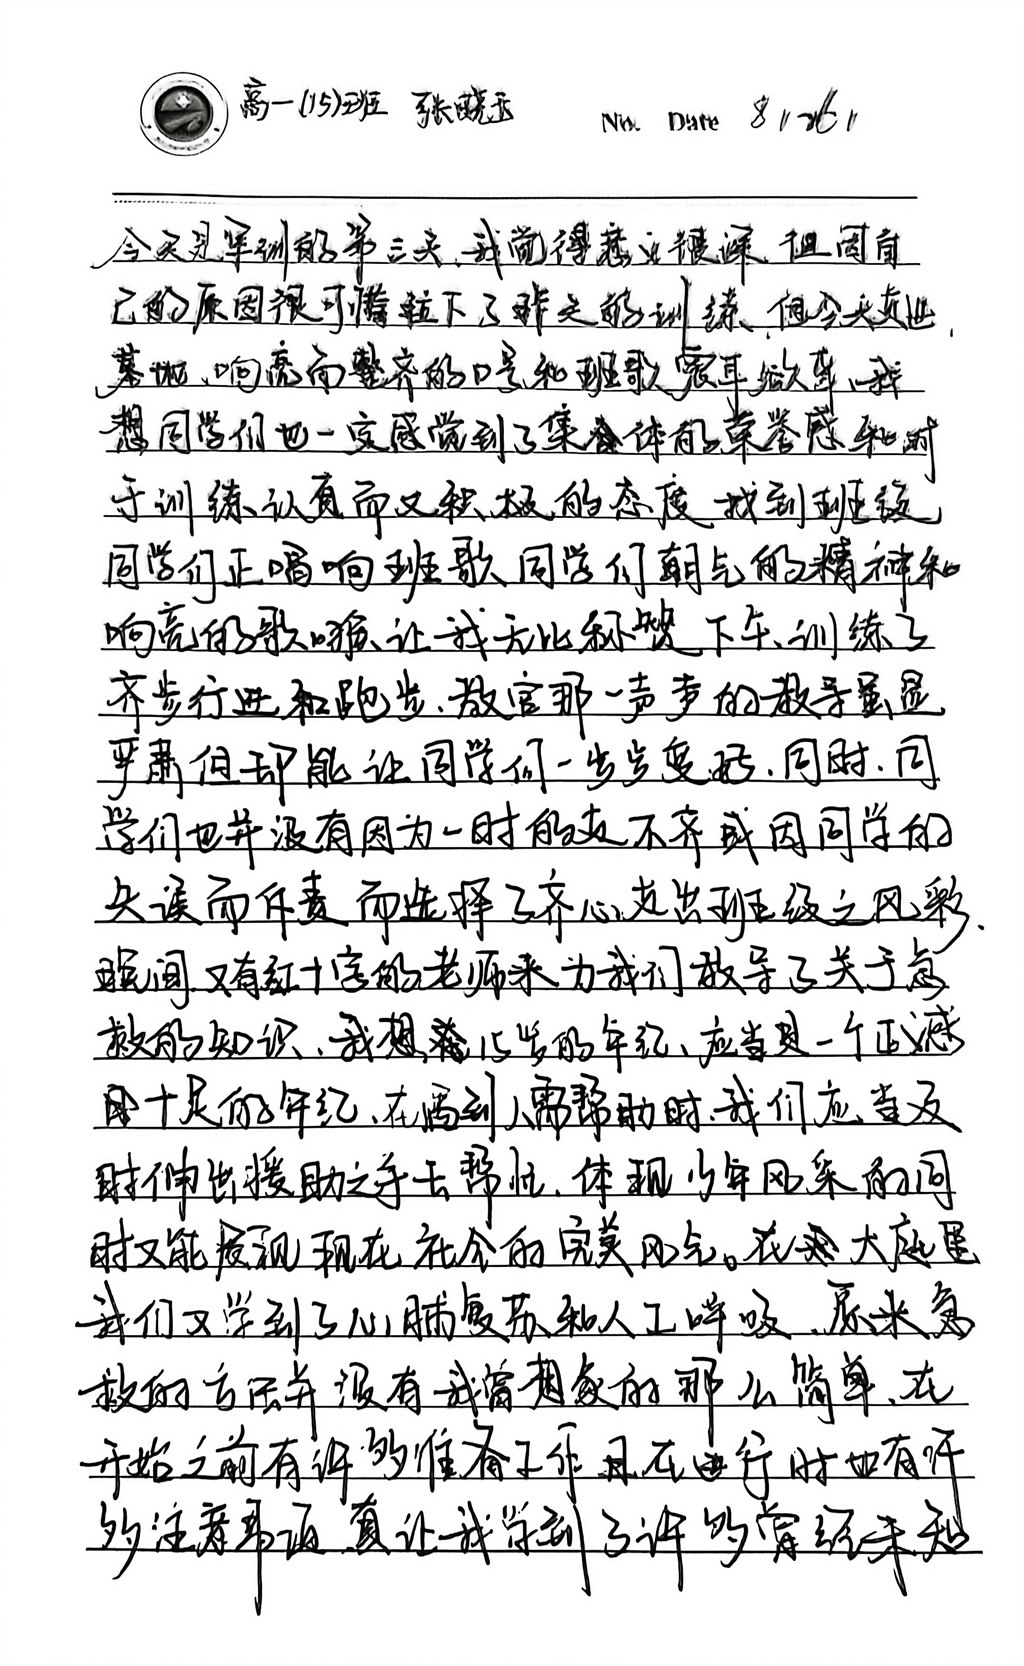 高一(15)班 张晓玉 No. Date 8 26
今天是军训的第三天、我觉得意义很深 但因自
己的原因很可惜拉下了昨天的训练、但今天真进
基地、响亮而整齐的口号和班歌震耳欲聋、我
想同学们也一定感觉到了集体的荣誉感和对
于训练认真而又积极的态度 找到班级
同学们正唱响班歌 同学们朝气的精神和
响亮的歌喉、让我无比称赞 下午、训练了
齐步行进和跑步、教官那一声声的教导虽显
严肃但却能让同学们一步步变好、同时、同
学们也并没有因为一时的走不齐或因同学的
失误而斥责 而选择了齐心走出班级之风彩、
晚间 又有红十字的老师来为我们教导了关于急
救的知识、我想 15岁的年纪、应当是一个正义感
十足的年纪、在遇到人需帮助时、我们应当及
时伸出援助之手去帮忙、体现少年风采的同
时又能 现在社会的完美风气。在 大庭里
我们又学到了心肺复苏和人工呼吸、原来急
救的方法并没有我曾想象的那么简单、在
开始之前有许多准备工作 且在进行时也有许
多注意事项 真让我学到了许多曾经未知